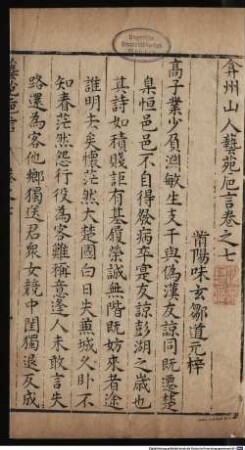 弇州山人藝苑卮言卷之七
莆陽味玄鄒道元梓
高子業少負淵敏生支干與偽漢友諒同既遷楚
臬恒邑邑不自得發病卒寘友諒彭湖之歲也
其詩如積賤詎有基履榮誠無階既妨來者途
誰明去矣懷茫然大楚國白日失蕪城久卧不
知春茫然怨行役為客難稱意逢人未敢言失
路還為客他鄉獨送君眾女競中閨獨退反成